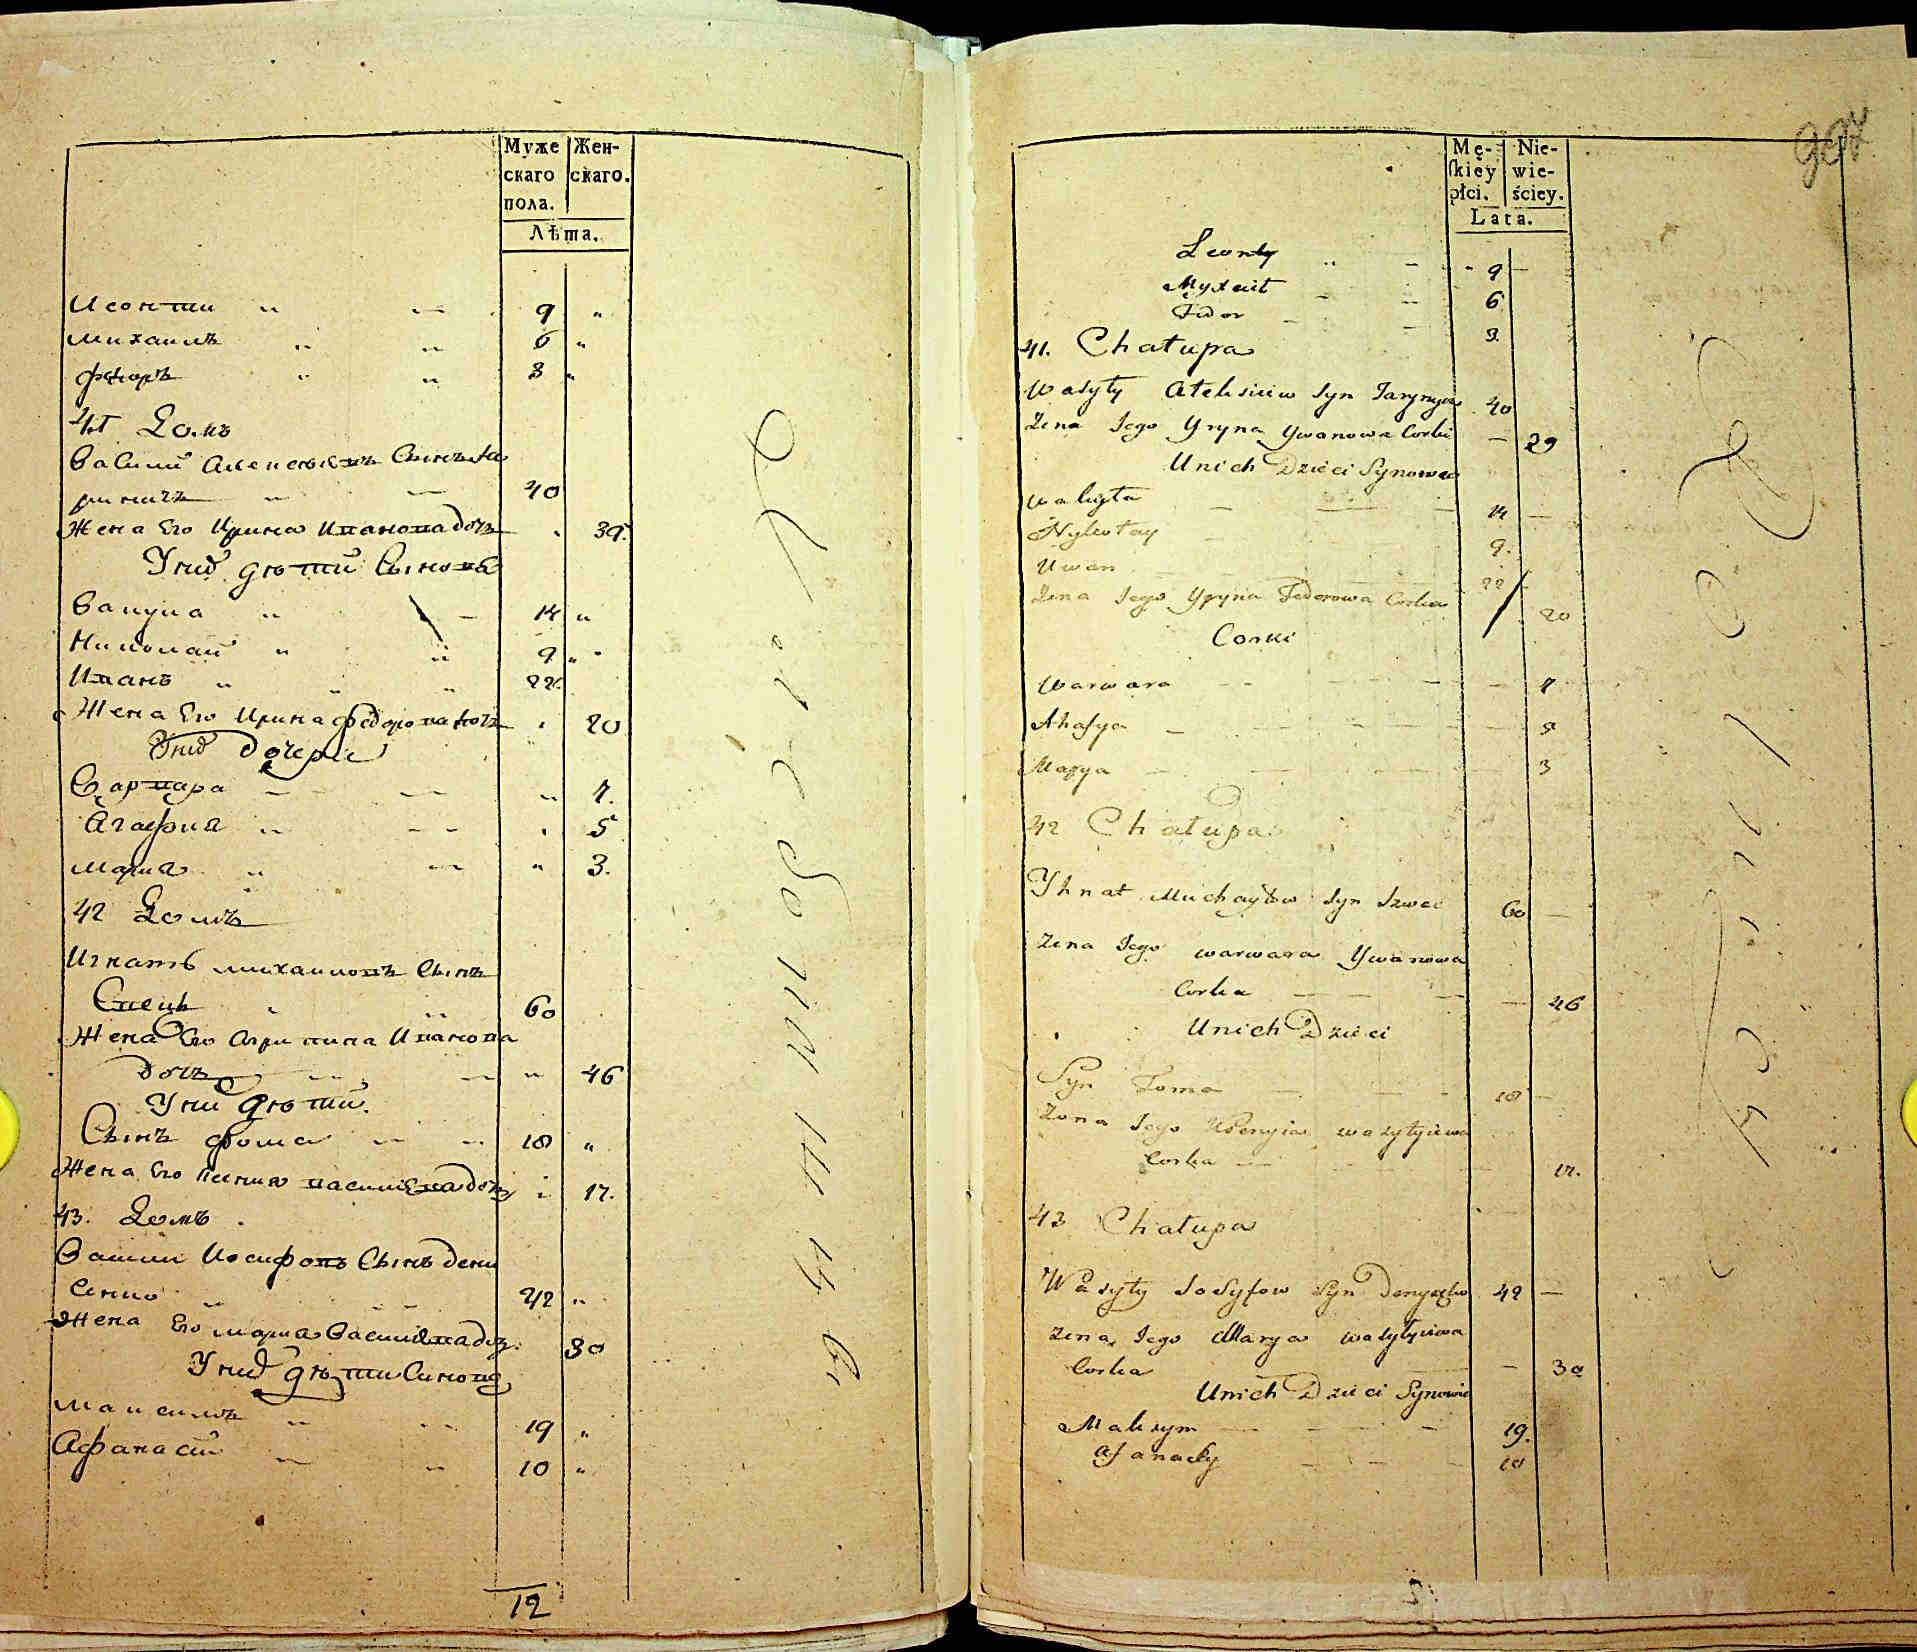 Муже
скаго
пола.
Жен-
скаго.
Лѣта.
Леонти 9
Михаилъ 6
Федоръ 3
41 Домъ
Василий Алексѣевъ Сынъ Яри
ничъ 40
Жена Его Ирина Иванова дочь 39.
У них дѣти Сыновя
Вакула 14
Николай 9
Иванъ 22.
Жена Его Ирина Федорова дочь 20
У них дочери
Варвара 7.
Агафия 5
Мария 3.
42 Домъ
Игнатъ Михаиловъ Сынъ
Швецъ 60
Жена Его Иванова
дочь 46
У них дѣти.
Сынъ Фома 18
Жена Его василева дочь 17.
43. Домъ
Васили Иосифовъ Сынъ Дени
сенко 42
Жена Его Мария Василева доч. 30
У них дѣти Синовя
Максимъ 19
Афанасий 10
12
Mę-
skiey
płci.
Nie-
wie-
ściey.
Lata.
Leonty 9
Myxaił 6
Fidor 3.
41. Chałupa
Wasyły Ałeksiiew syn 40
Żena Jego Yryna Ywanowa Corka 29
Unich Dzieci Synowie
Wakuła 14
Nykołay 9.
Uwan 22
Żena Jego Yryna Fedorowa Corka 20
Corki
Warwara 7
Ahafya 5
Marya 3
42 Chałupa
Yhnat Michayłow syn Szwec 60
Żena Jego warwara Ywanowa
Corka 46
Unich Dzieci
Syn Foma 18
Zona Jego wasyłyiewa
Corka 17.
43 Chałupa
Wasyły Josyfow Syn Denysenko 42
Żena Jego Marya wasyłyiewa
Corka 30
Unich Dzieci Synowie
Maksym 19.
Afanasy 10